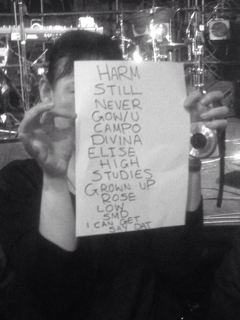 HARM
STILL
NEVER
GOW/U
CAMPO
DIVINA
ELISE
HIGH
STUDIES
GROWN UP
ROSE
LOW
SMD
I CAN GET
SAY DAT